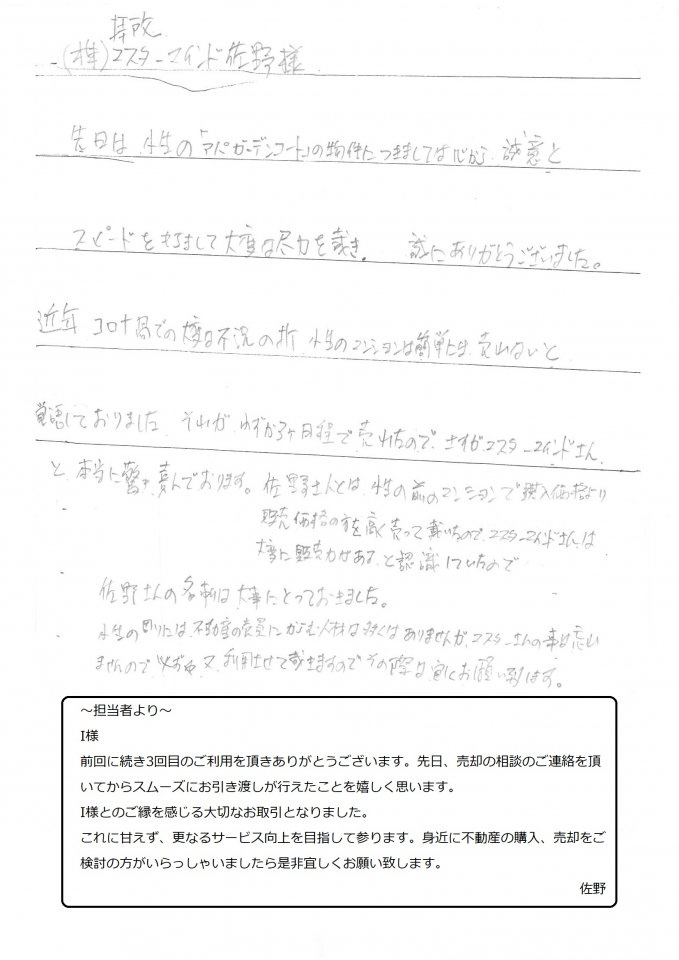 拝啓
(株)コスターマインド佐野様
先日は 小生の「アパガーデンコート」の物件につきましては心から 誠意と
スピードをもちまして大変な尽力を戴き。 誠にありがとうございました。
近年 コロナ禍での大変な不況の折 小生のマンションは簡単には 売れないと
覚悟しておりました それが わずか3ヶ月程で売れたので さすがコスターマインドさん
と 本当に驚き喜んでおります。佐野さんとは、小生の前のマンションで購入価格より
販売価格の方を高く売って戴いたので、コスターマインドさんは
大変に販売力がある と認識していたので
佐野さんの名刺は大事にとっておきました。
小生の周りには、不動産の売買にからむ人材は多くはありませんが、コスターさんの事は忘れ
ませんので 必ずや 又 利用させて戴きますのでその際は 宜しくお願い致します。
～担当者より～
I様
前回に続き3回目のご利用を頂きありがとうございます。先日、売却の相談のご連絡を頂
いてからスムーズにお引き渡しが行えたことを嬉しく思います。
I様とのご縁を感じる大切なお取引となりました。
これに甘えず、更なるサービス向上を目指して参ります。身近に不動産の購入、売却をご
検討の方がいらっしゃいましたら是非宜しくお願い致します。
佐野